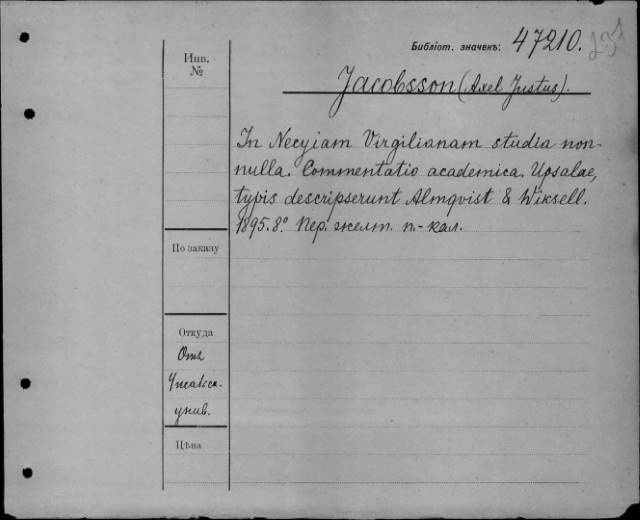 Библіот. значекъ: 47210.
Инв.
№
Jacobsson (Axel Justus).
In Necyiam Virgilianam studia non-
nulla. Commentatio academica. Upsalae,
typis descripserunt Almqvist & Wiksell.
1895. 8° Пер. желт. п.-кал.
По заказу
Откуда
Отъ
Упсальск.
унив.
Цѣна